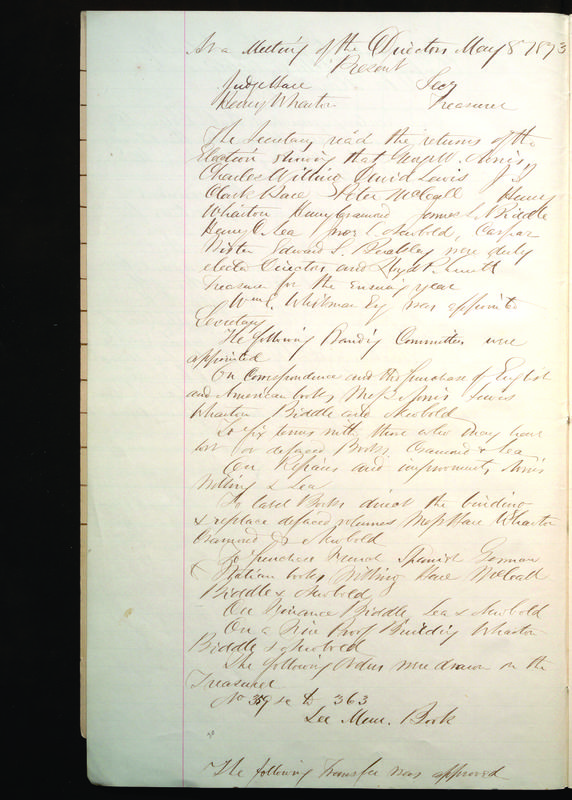 At a Meeting of the Directors May 8 1873
Present
Judge Hare Secy
Henry Wharton Treasurer
The Secretary read the returns of the
Election showing that Geo W. Norris
Charles Willing David Lewis J I
Clark Hare Peter McCall Henry
Wharton Henry Cramond James S. Biddle
Henry C. Lea Newbold, Caspar
Wister Edward S. Buckley were duly
elected Directors and Lloyd P. Smith
Treasurer for the ensuing year
Wm E. Whitman Esq was appointed
Secretary
The following Standing Committees were
appointed
On Correspondence and the purchase of English
and American books, Messrs Norris Lewis
Wharton Biddle and Newbold
To fix terms with those who may have
lost or defaced Books, Cramond & Lea
On Repairs and improvements, Norris
Willing & Lea
To label Books direct the binding
& replace defaced volumes Messrs Hare Wharton
Cramond & Newbold
To purchase French Spanish German
Italian books, Willing Hare McCall
Biddle & Newbold
On Finance Biddle, Lea & Newbold
On a Fire Proof Building Wharton
Biddle & Newbold
The following Orders were drawn on the
Treasurer
No 359 to 363
See Mem. Book
"
The following Transfer was approved